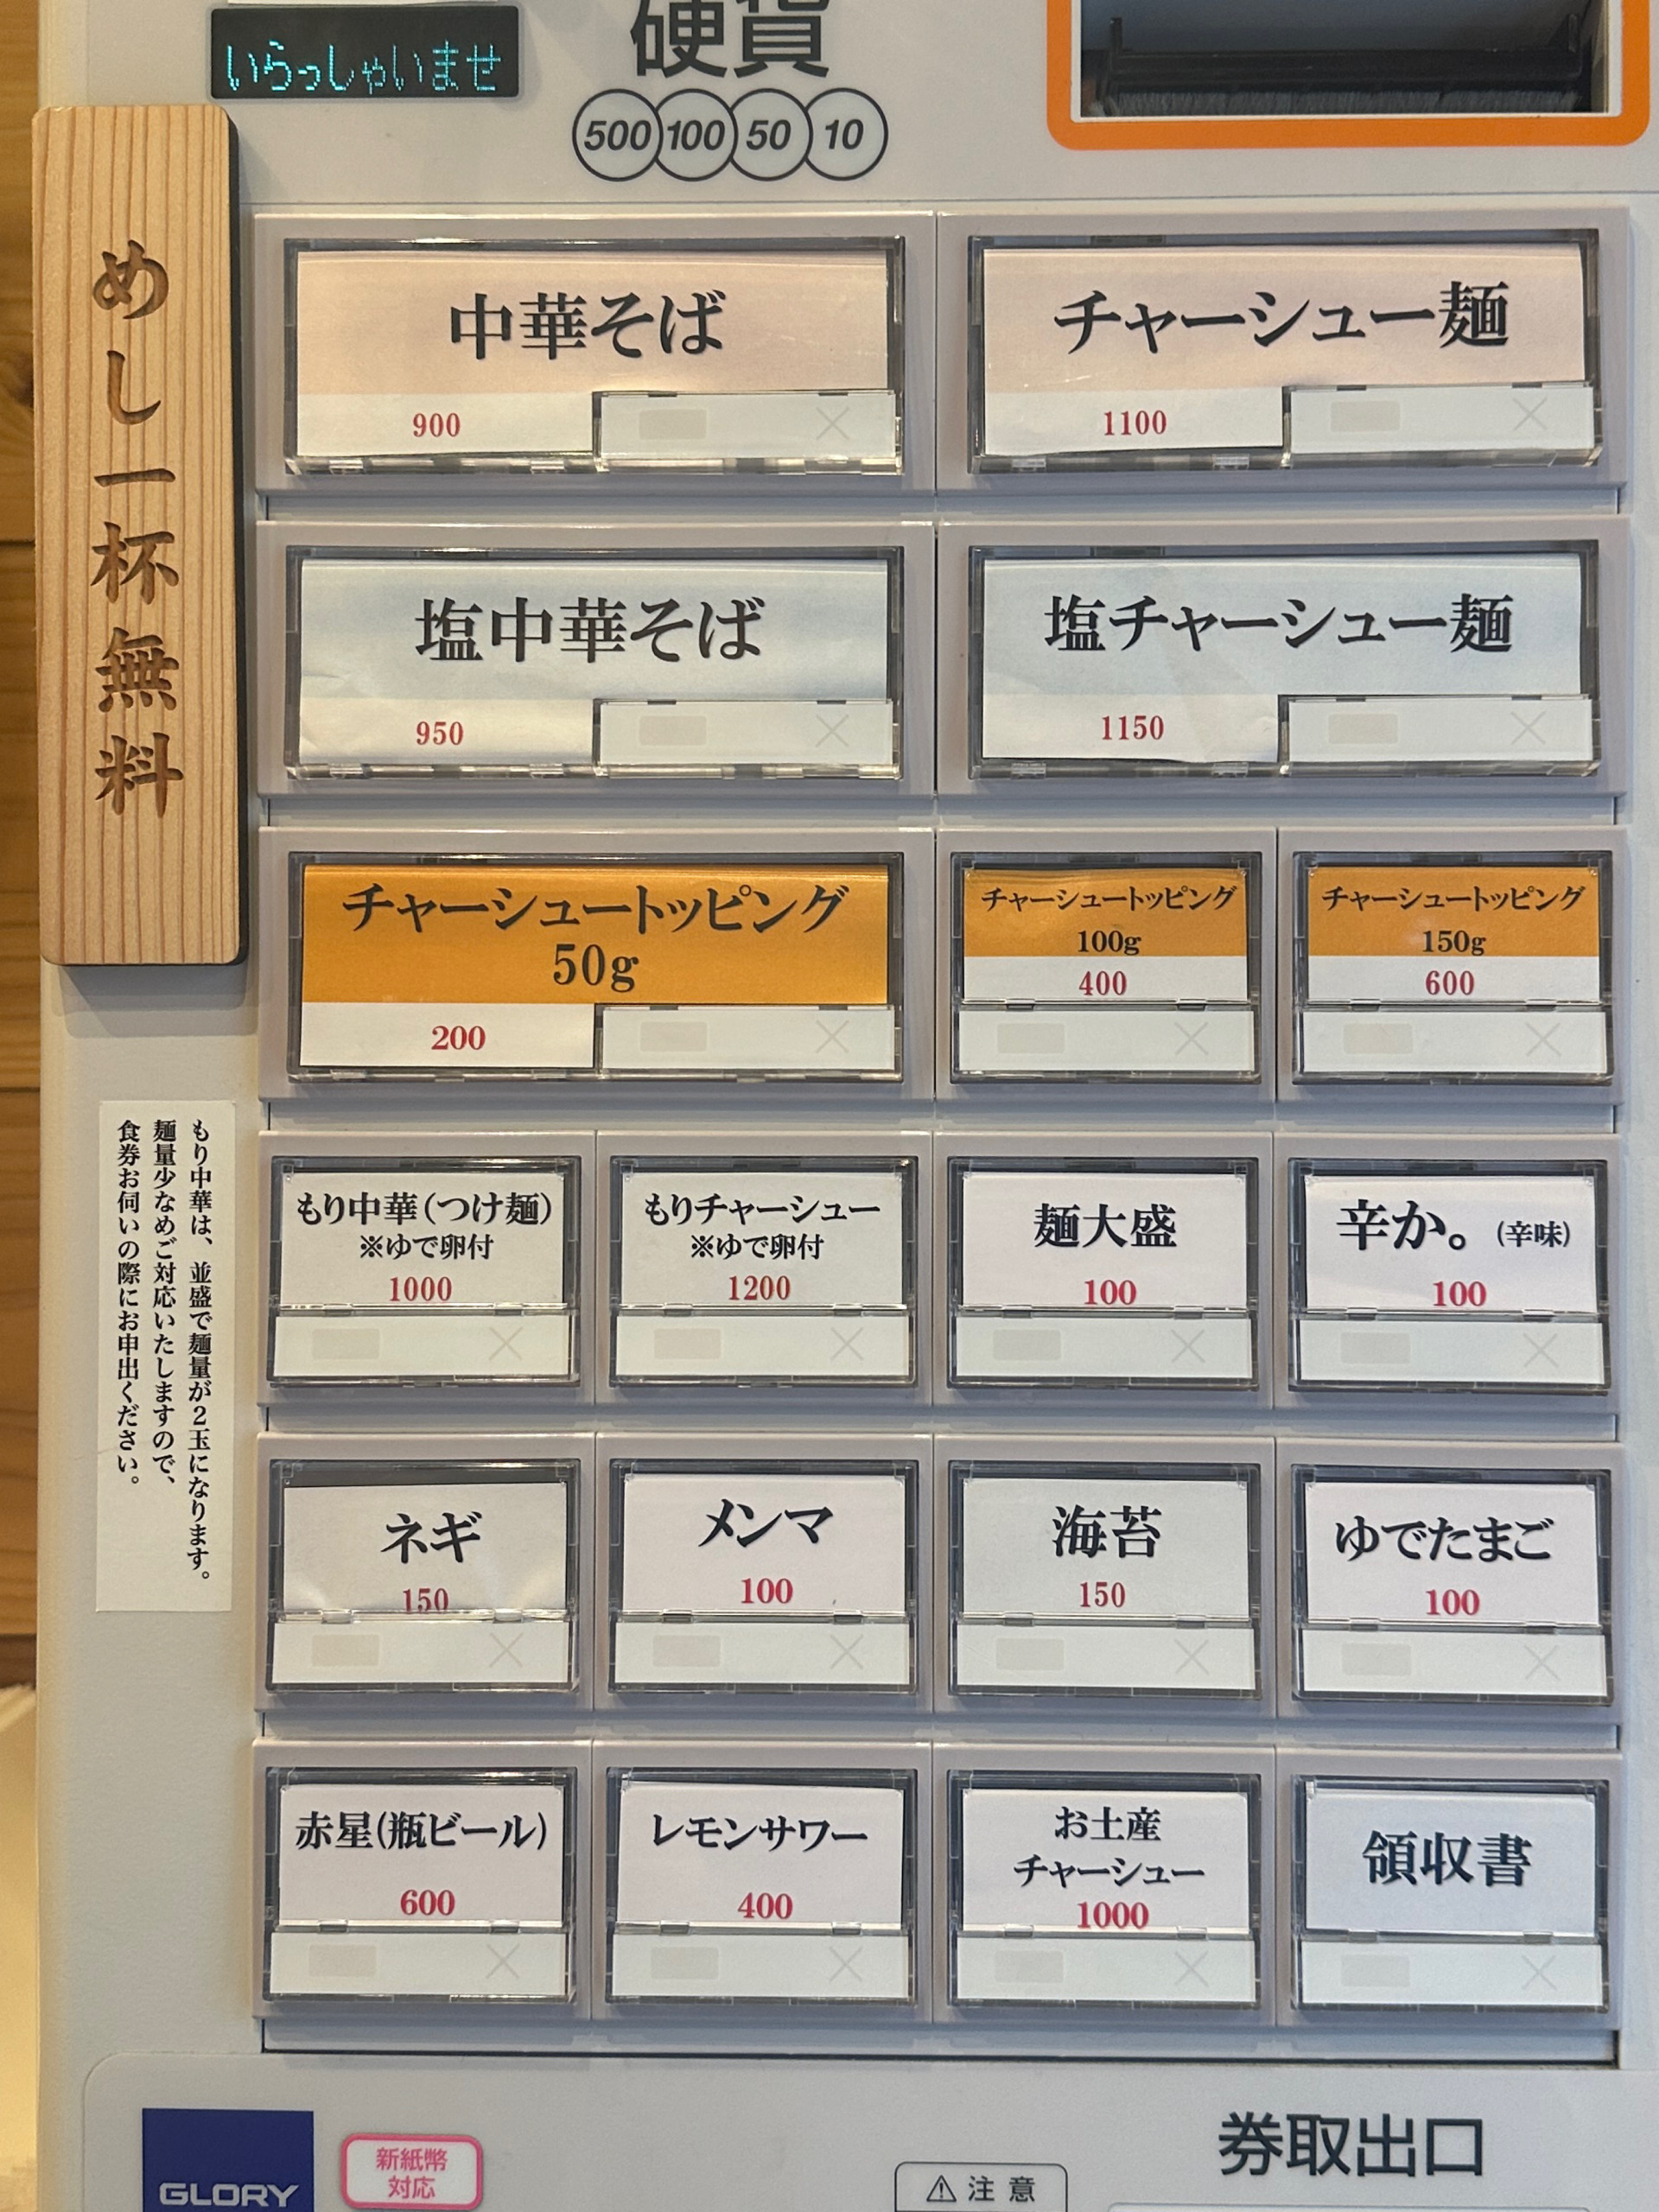 いらっしゃいませ
硬貨
500 100 50 10
めし一杯無料
中華そば
900
チャーシュー麺
1100
塩中華そば
950
塩チャーシュー麺
1150
チャーシュートッピング
50g
200
チャーシュートッピング
100g
400
チャーシュートッピング
150g
600
もり中華は、並盛で麺量が2玉になります。
麺量少なめご対応いたしますので、
食券お伺いの際にお申出ください。
もり中華(つけ麺)
※ゆで卵付
1000
もりチャーシュー
※ゆで卵付
1200
麺大盛
100
辛か。(辛味)
100
ネギ
150
メンマ
100
海苔
150
ゆでたまご
100
赤星(瓶ビール)
600
レモンサワー
400
お土産
チャーシュー
1000
領収書
券取出口
GLORY
新紙幣
対応
注意